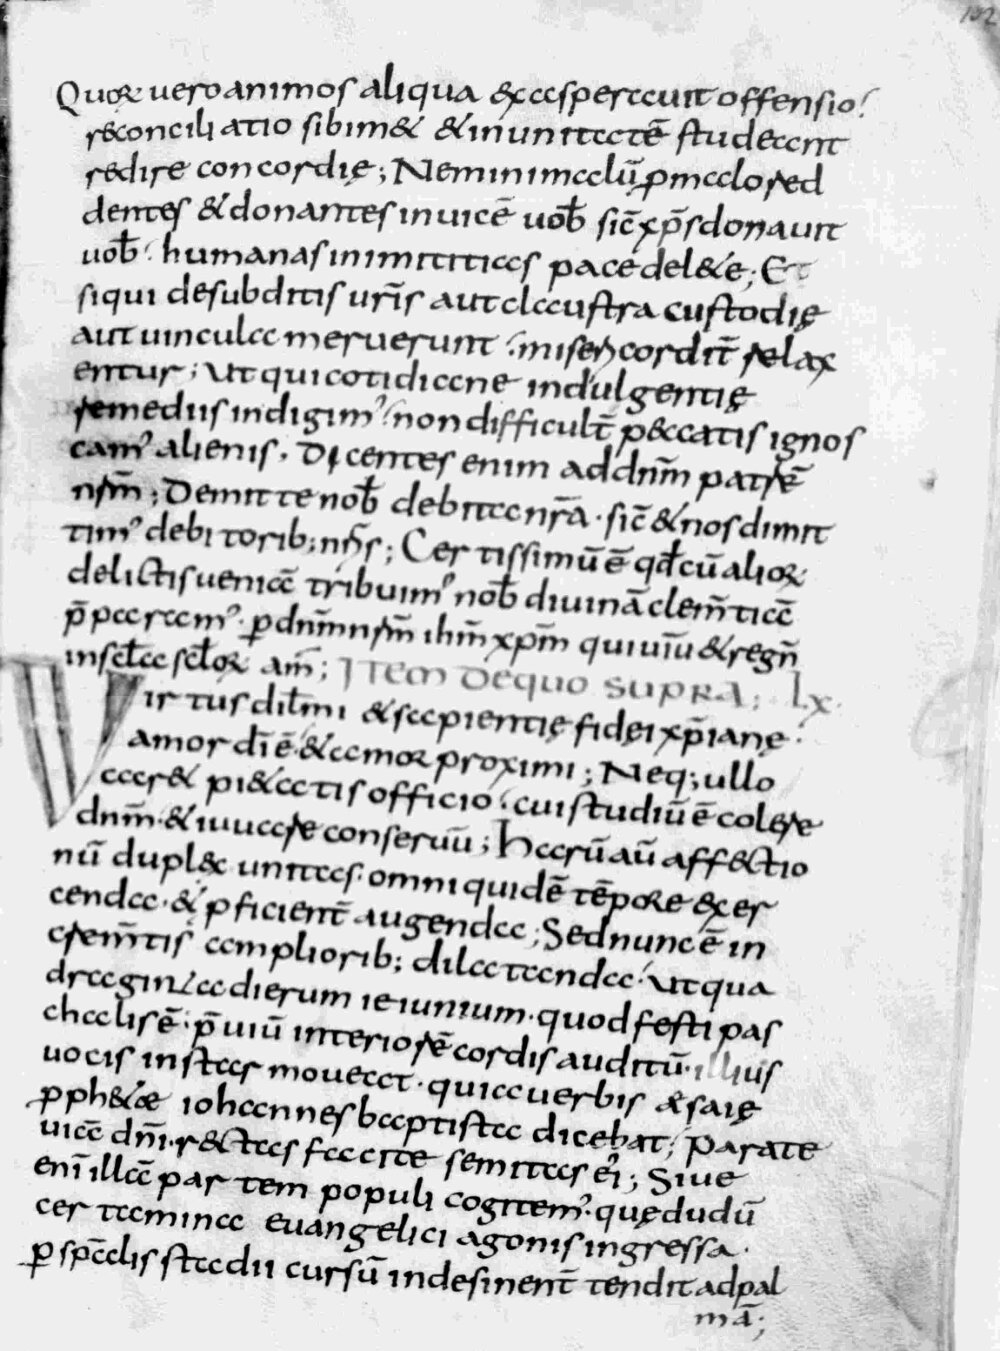 102
Quoꝝ uero animos aliqua exasperauit offensio;
reconciliatio sibimet & in unitatē studeant
redire concordię; Nemini malū ꝑ malo red
dentes & donantes inuicē uob̄ sic̄ xp̄s donauit
uob̄. humanas inimititias pace delete; Et
siqui de subditis uris̄ aut claustra custodię
aut uincula meruerunt. misericordit̄ relax
entur; Ut qui cotidiane indulgentię
remediis indigim᾽ non difficult̄ peccatis ignos
cam᾽ alienis. Dicentes enim ad dnm̄ patrē
nrm̄; Demitte nob̄ debita nrā. sic̄ & nos dimit
tim᾽ debitorib; nris̄; Certissimū ē qd̄ cū alioꝝ
delictis ueniā tribuim᾽ nob̄ diuinā clem̄tiā
p̄param᾽. ꝑ dnm̄ nrm̄ ihm̄ xpm̄ qui uiuī & regn̄
in scl̄a scl̄oꝝ am̄; ITEM DE QUO SUPRA; LX.
Virtus dil̄mi & sapientię fidei xp̄ianę.
amor dī ē. & amor proximi; Neq; ullo
caret pietatis officio. cui studiū ē colere
dnm̄. & iuuare conseruū; Harū aū affectio
nū duplex unitas. omni quidē tēpore exer
cenda. & ꝓficient̄ augenda; Sed nunc ē in
crem̄tis ampliorib; dilatanda. Ut qua
draginta dierum ieiunium. quod festi pas
chalis ē. p̄uiū interiorē cordis auditū. illius
uocis instar moueat. quia uerbis esaię
ꝓphetae iohannes baptista dicebat; Parate
uiā dn̄i. rectas facite semitas eī; Siue
enī illā partem populi cogitem᾽. quę dudū
certamina euangelici agonis ingressa.
ꝑ sp̄alis stadii cursū indesinent̄ tendit ad pal
mā;